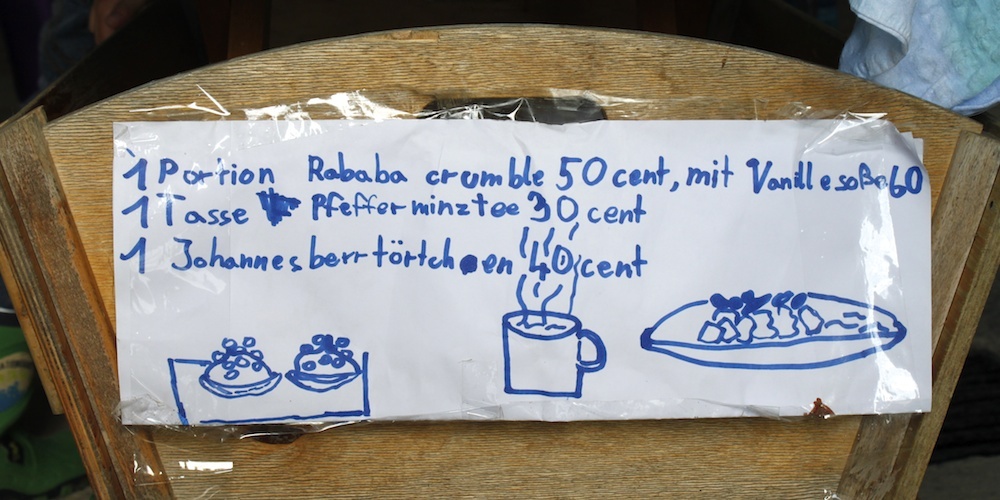 1 Portion Rababa crumble 50 cent, mit Vanillesoße 60
1 Tasse Pfefferminztee 30 cent
1 Johannesberrtörtchen 40 cent